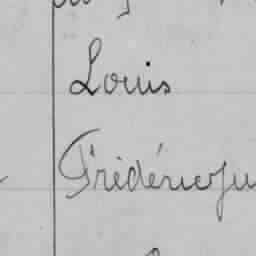 Louis
Frédéric